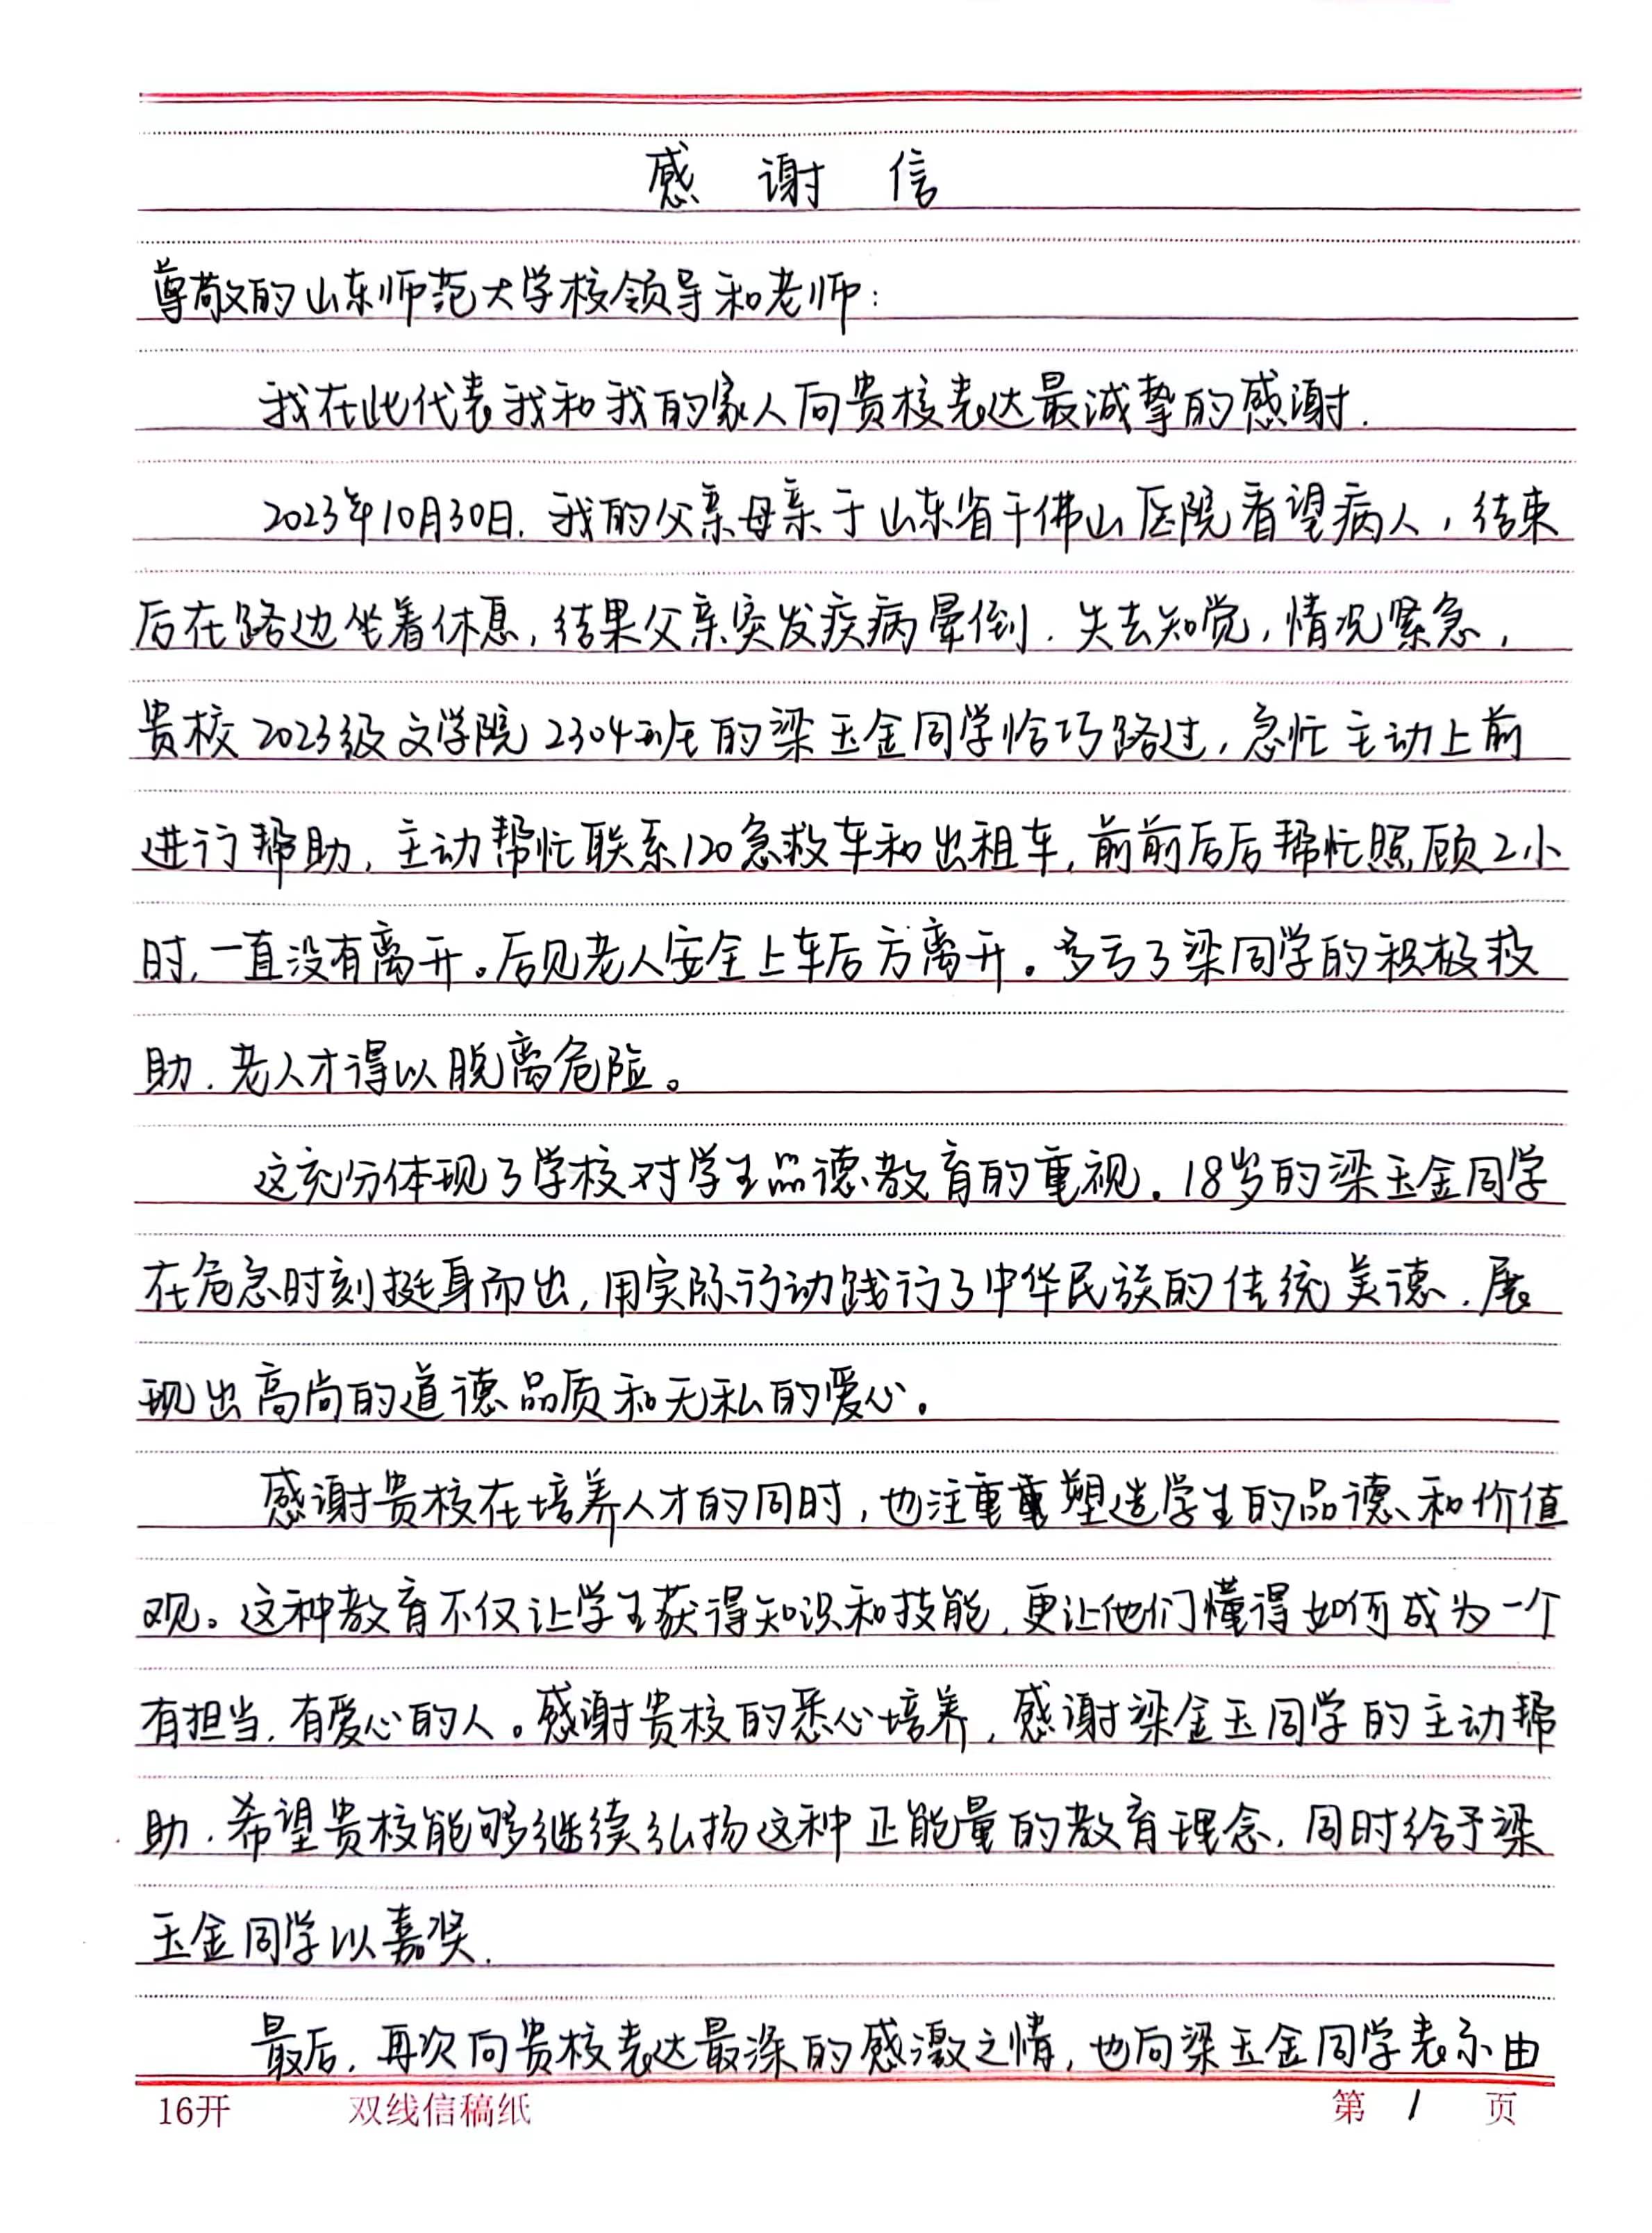 感 谢 信
尊敬的山东师范大学校领导和老师:
我在此代表我和我的家人向贵校表达最诚挚的感谢.
2023年10月30日.我的父亲母亲于山东省千佛山医院看望病人,结束
后在路边坐着休息,结果父亲突发疾病晕倒.失去知觉,情况紧急,
贵校2023级文学院2304班的梁玉金同学恰巧路过,急忙主动上前
进行帮助,主动帮忙联系120急救车和出租车,前前后后帮忙照顾2小
时,一直没有离开。后见老人安全上车后方离开。多亏了梁同学的积极救
助.老人才得以脱离危险。
这充分体现了学校对学生品德教育的重视。18岁的梁玉金同学
在危急时刻挺身而出,用实际行动践行了中华民族的传统美德.展
现出高尚的道德品质和无私的爱心。
感谢贵校在培养人才的同时,也注重重塑造学生的品德和价值
观。这种教育不仅让学生获得知识和技能,更让他们懂得如何成为一个
有担当,有爱心的人。感谢贵校的悉心培养,感谢梁金玉同学的主动帮
助.希望贵校能够继续弘扬这种正能量的教育理念,同时给予梁
玉金同学以嘉奖.
最后,再次向贵校表达最深的感激之情,也向梁玉金同学表示由
16开 双线信稿纸 第 1 页